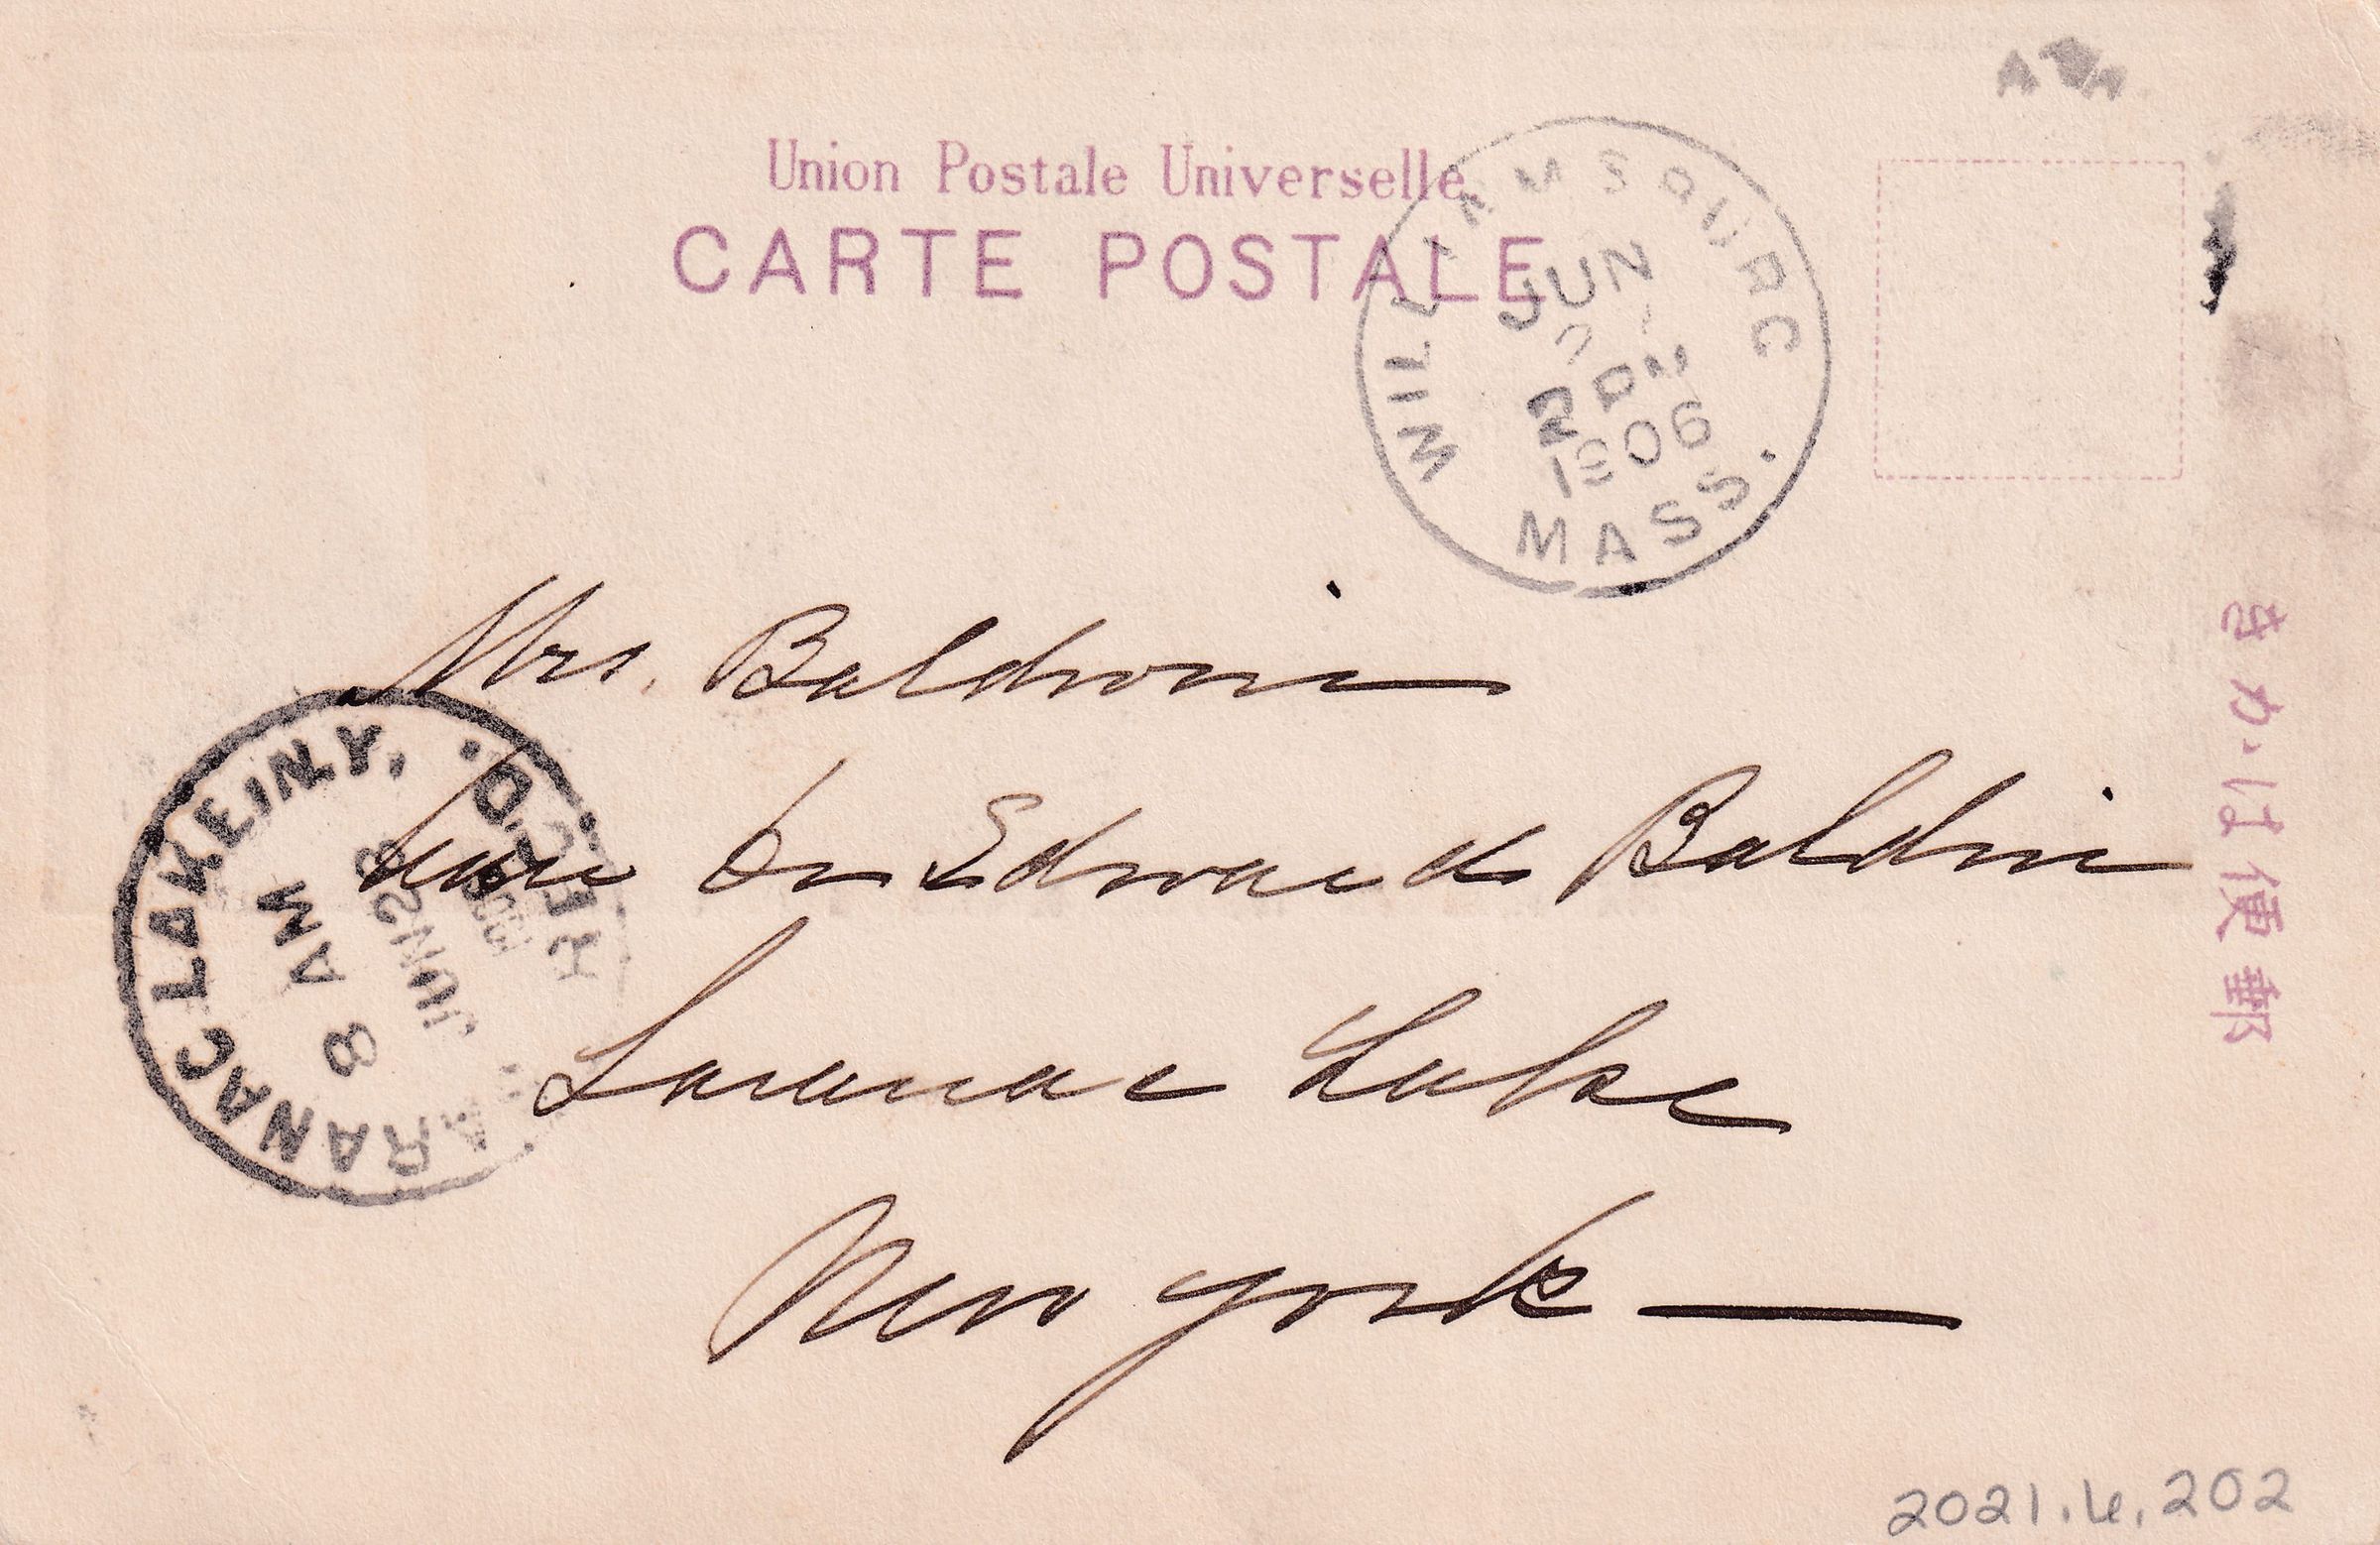 Union Postale Universelle.
CARTE POSTALE
WILLIAMSBURG
JUN
PM
1906
MASS.
きかは便郵
Mrs. Baldwin
Care Dr Edward Baldwin
Saranac Lake
New York
SARANAC LAKE, N.Y.
REC'D.
JUN 28
8 AM
2021.4.202